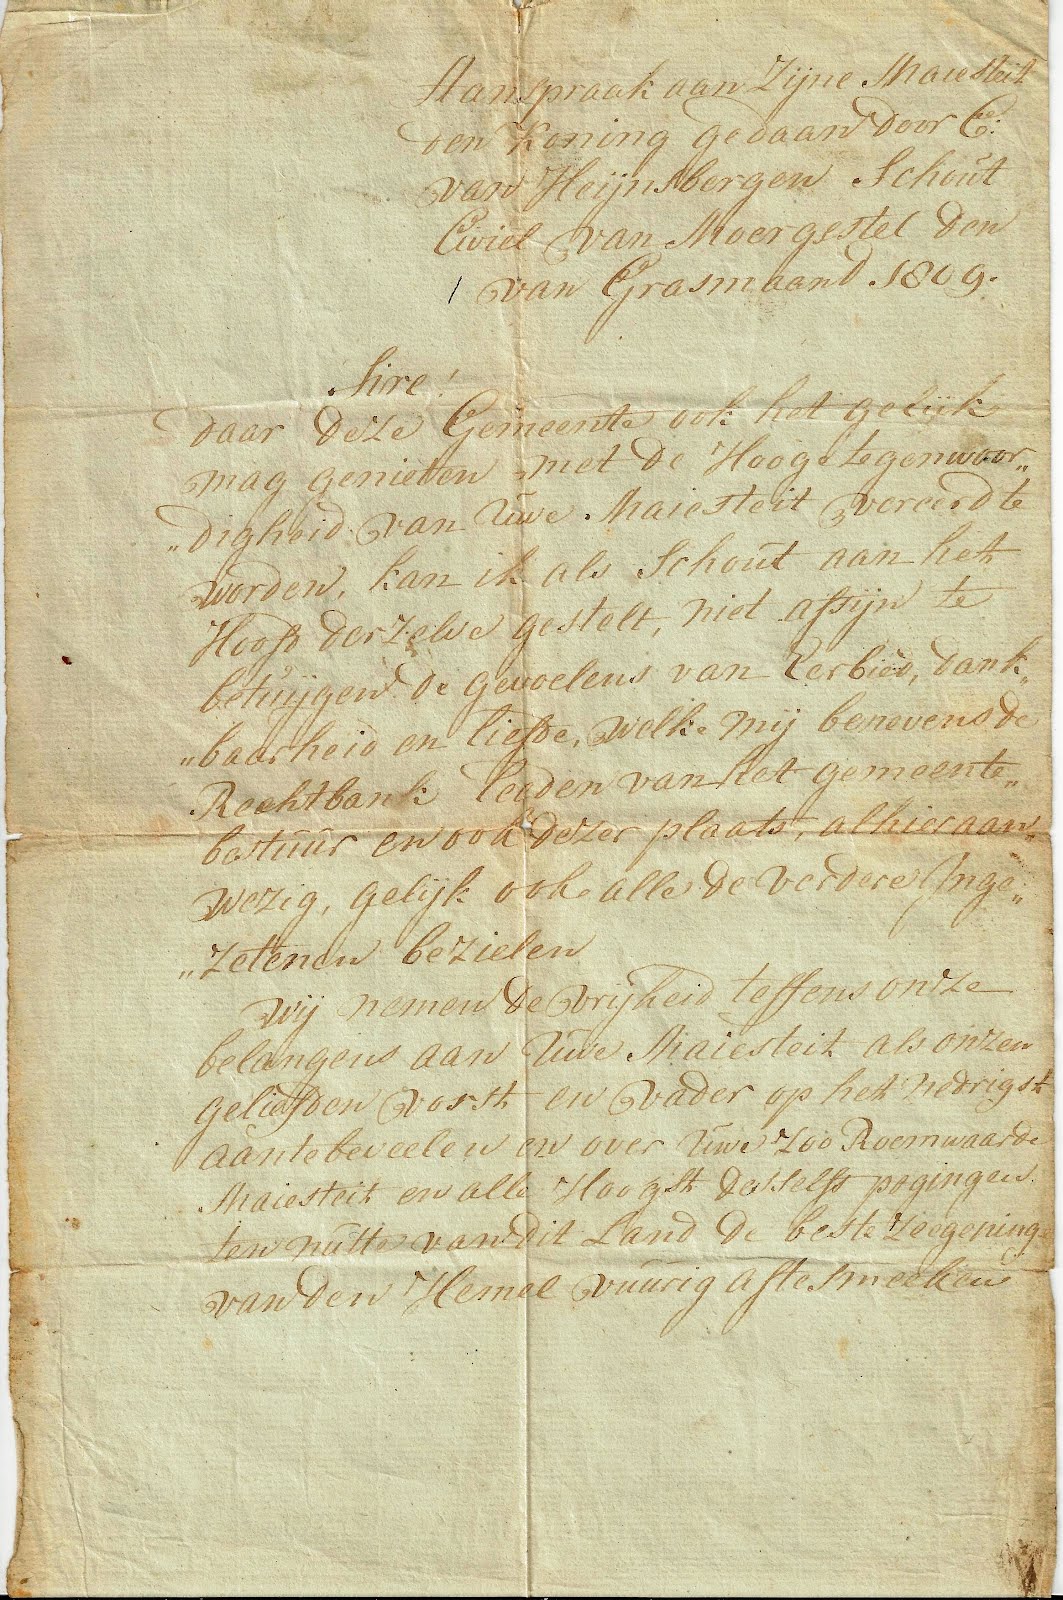 Aanspraak aan Zijne Maiesteit
den Koning gedaan door C:
van Heijnsbergen Schout
Civiel van Moergestel den
van Grasmaand 1809.
Sire!
daar deze Gemeente ook het geluk
mag genieten met de Hooge tegenwoor„
„digheid van Uwe Maiesteit vereerd te
worden, kan ik als Schout aan het
Hoofd derzelve gestelt, niet afsijn te
betuijgen de gevoelens van Eerbied, dank„
„baarheid en liefde, welke mij benevens de
Rechtbank leeden van het gemeente„
bestuur en ook dezer plaats, alhier aan„
wezig, gelijk ook alle de verdere Inge„
„zetenen bezielen
Wij nemen de vrijheid teffens onze
belangens aan Uwe Maiesteit als onzen
geliefden vorst en vader op het nedrigst
aantebeveelen en over Uwe zoo Roemwaarde
Maiesteit en alle Hoogst deszelfs pogingen
ten nutte van dit Land de beste zeegeninge
van den Hemel vuurig aftesmeeken